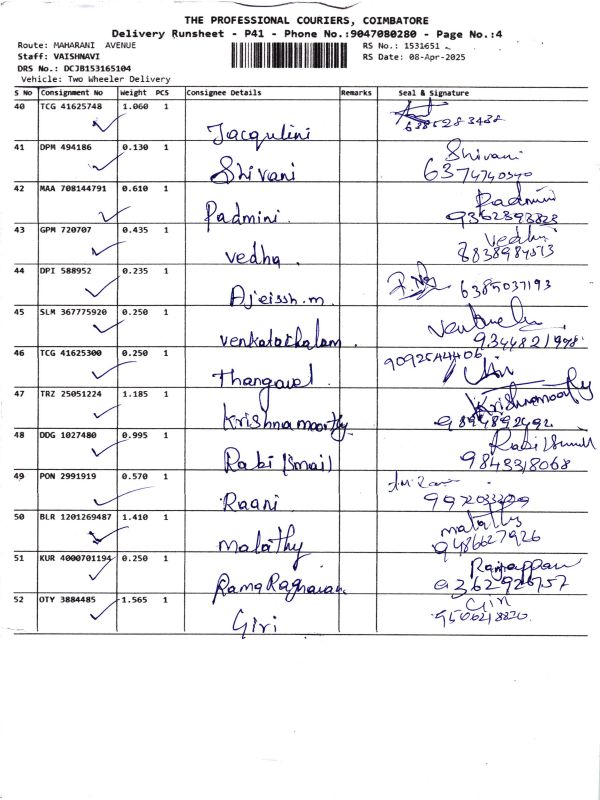 THE PROFESSIONAL COURIERS, COIMBATORE
Delivery Runsheet - P41 - Phone No.:9047080280 - Page No.:4
Route: MAHARANI AVENUE
RS No.: 1531651
Staff: VAISHNAVI
RS Date: 08-Apr-2025
DRS No.: DCJB153165104
Vehicle: Two Wheeler Delivery
S No Consignment No Weight PCS Consignee Details Remarks Seal & Signature
40 TCG 41625748 1.060 1
Jacqulini 6385283438
41 DPM 494186 0.130 1
Shivani
Shivani 6374740540
42 MAA 708144791 0.610 1
Padmini
Padmini. 9362893828
43 GPM 720707 0.435 1
Vedha. 8838984513
44 DPI 588952 0.235 1
Ajeissh.m 6385037193
45 SLM 367775920 0.250 1
Venkatachalam. 9344821998
46 TCG 41625300 0.250 1
9092544406
Thangavel.
47 TRZ 25051224 1.185 1
Krishnamoorthy
Krishnamoorthy 9894892492
48 DDG 1027480 0.995 1
Rabi (Smail)
9843318068
49 PON 2991919 0.570 1
Raani.
50 BLR 1201269487 1.410 1
malathy
malathy 9486627926
51 KUR 4000701194 0.250 1
Rama Raghavan.
52 OTY 3884485 1.565 1
Giri
Giri